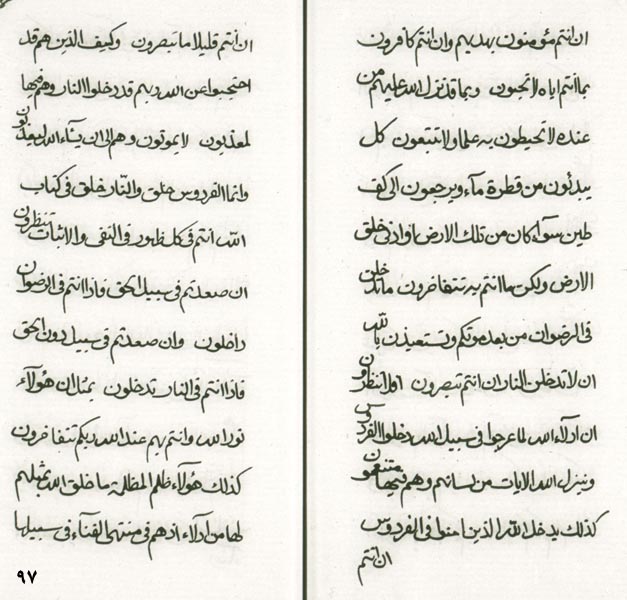 ان انتم مؤمنون بهديهم وان انتم كافرون
بما انتم اياه لا تحبون وبما قد نزل الله عليهم من
عنده لا تحيطون به علما ولا تتبعون كل
يبدئون من قطرة مآء ويرجعون الى كف
طين سوآء كان من تلك الارض او اذنى خلق
الارض ولكن ما انتم به تتفاخرون ما تدخلن
فى الرضوان من بعد موتكم وتستعيذن بالله
ان لا تدخلن النار ان انتم تبصرون اولا تنظرون
ان ادلاء الله لما عرجوا فى سبيل الله دخلوا الفردوس
وينزل الله الايات من لسانهم وهم فيها متنعمون
كذلك يدخل الله الذين امنوا فى الفردوس
ان انتم
ان انتم قليلا ما تبصرون وكيف الذين هم قد
احتجبوا عن الله ربهم قد دخلوا النار وهم فيها
لمعذبون لا يموتون وهم الى ان يشآء الله ليعذبون
وانما الفردوس خلق والنار خلق فى كتاب
الله انتم فى كل ظهور فى النفى والاثبات تنظرون
ان صعدتم فى سبيل الحق فاذا انتم فى الرضوان
داخلون وان صعدتم فى سبيل دون الحق
فاذا انتم فى النار تدخلون بمثل ان هؤلآء
نور الله وانتم بهم عند الله ربكم تتفاخرون
كذلك هؤلآء ظلم المظلمة ما خلق الله بمثلهم
لها من ادلآء اذ هم فى منتهى الفنآء فى سبيلها
٩٧